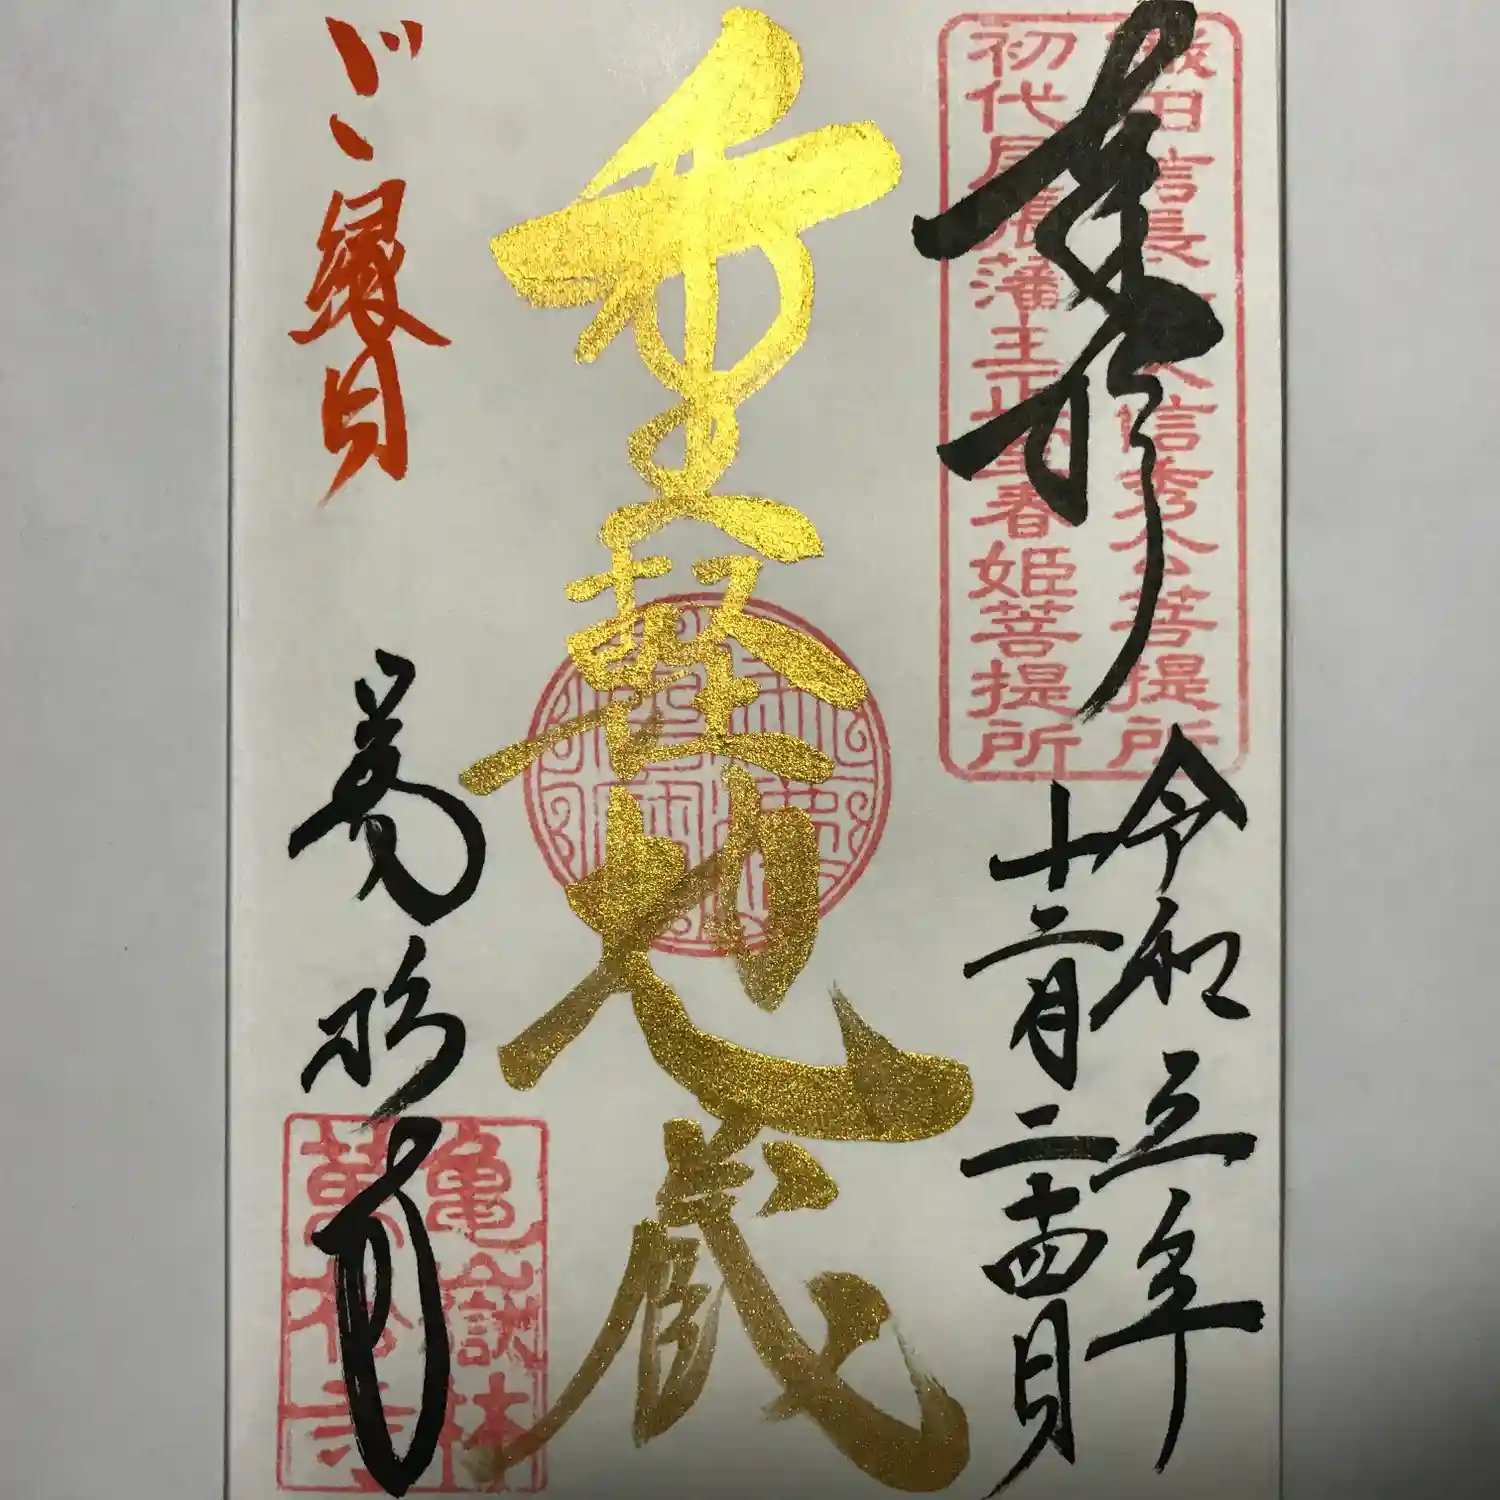 奉拝
織田信長父信秀公菩提所
初代尾張藩主正室春姫菩提所
令和五年
十二月二十四日
重軽地蔵
ご縁日
萬松寺
亀嶽林
萬松寺